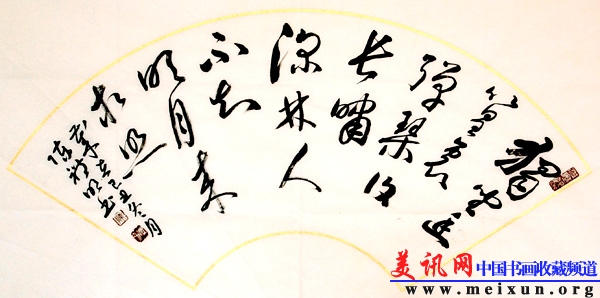 独
坐幽篁里
弹琴复
长啸
深林人
不知
明月来
相照
己丑冬月
美讯网 中国书画收藏频道
www.meixun.org